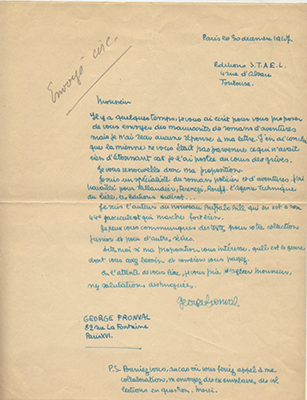 Paris le 30 décembre 1947
Editions S.T.A.E.L.
4 rue d'Alsace
Toulouse.
Envoyé circ.
Monsieur
Il y a quelques temps, je vous ai écrit pour vous proposer
de vous envoyer des manuscrits de romans d'aventures
mais je n'ai reçu aucune réponse à ma lettre. J'en ai conclu
que la mienne ne vous était pas parvenue ce qui n'avait
rien d'étonnant car je l'ai postée au cours des grèves.
Je vous renouvelle donc ma proposition.
Je suis un spécialiste du roman policier et d'aventures. J'ai
travaillé pour Tallandier, Ferenczi, Rouff, l'Agence Technique
du Livre,
Je suis l'auteur du nouveau Buffalo Bill qui en est à son
44e fascicule et qui marche fort bien.
Je peux vous communiquer des
Si ma proposition vous intéresse, quel est le genre
dont vous avez besoin et combien vous payez.
En l'attente de vous lire, je vous prie d'agréer Monsieur,
mes salutations distinguées.
George Fronval
GEORGE FRONVAL
82 rue La Fontaine
Paris XVI.
P.S. Pourriez-vous, au cas où vous feriez appel à ma
collaboration, m'envoyer des exemplaires des col
lections en question. Merci.